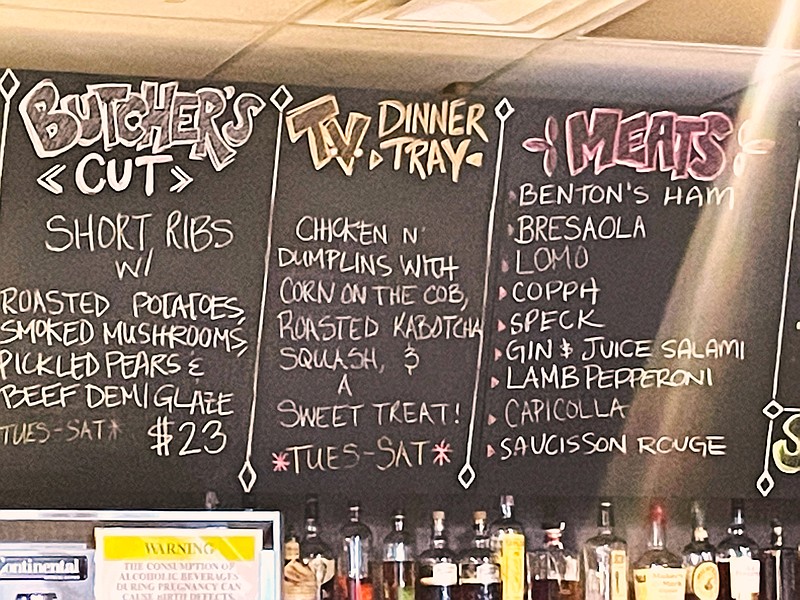 BUTCHER'S
<CUT>
SHORT RIBS
W/
ROASTED POTATOES,
SMOKED MUSHROOMS,
PICKLED PEARS &
BEEF DEMI GLAZE
TUES-SAT*
$23
T.V. DINNER
TRAY
CHICKEN N'
DUMPLINS WITH
CORN ON THE COB,
ROASTED KABOTCHA
SQUASH, &
A
SWEET TREAT!
*TUES-SAT*
MEATS
BENTON'S HAM
BRESAOLA
LOMO
COPPA
SPECK
GIN & JUICE SALAMI
LAMB PEPPERONI
CAPICOLLA
SAUCISSON ROUGE
S
Continental
WARNING
THE CONSUMPTION OF
ALCOHOLIC BEVERAGES
DURING PREGNANCY CAN
CAUSE BIRTH DEFECTS.